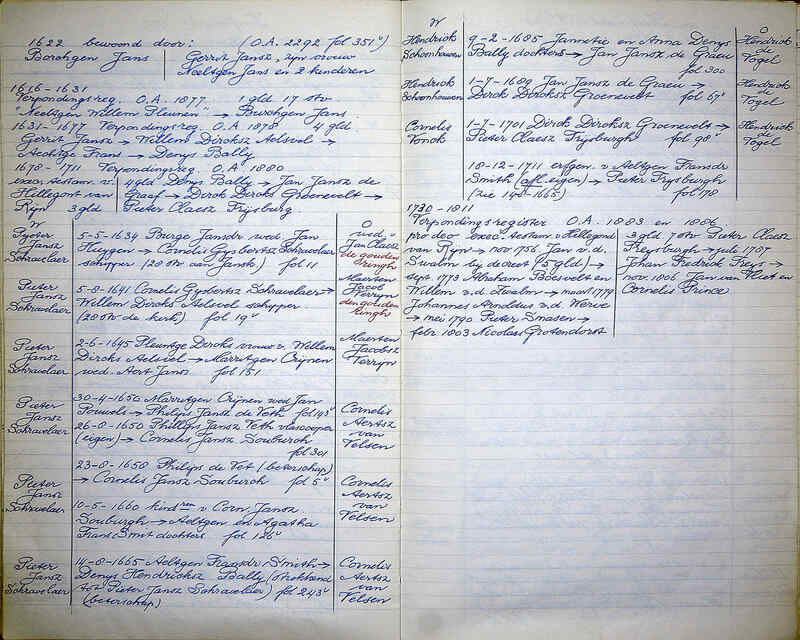 1622 bewoond door: (O.A. 2292 fol 351v)
Borchgen Jans Gerrit Jansz, zijn vrouw
Neeltgen Jans en 2 kinderen
1616-1631
Verpondingsreg. O.A. 1877. 1 gld 17 stv
Neeltgen Willem Pleunen → Burchgen Jans
1631-1677 Verpondingsreg O.A 1878 4 gld
Gerrit Jansz → Willem Dircksz Aelswel →
Aechtge Frans → Denys Bally
1678-1711 Verpondingsreg. O.A 1880
exec. testam. v. 4 gld Denys Bally → Jan Jansz de
Hillegont van Graef → Dirck Dircksz Groenevelt →
Rijn 3 gld Pieter Claesz Frijsburg
W O
Pieter Jansz Schravelaer
5-5-1634 Burge Jansdr wed. Jan
Huygen → Cornelis Gysbertsz Schravelaer
schipper (20 stv aan Jansk) fol 11
wed. v Jan Claesz de gouden Ringh
Pieter Jansz Schravelaer
5-8-1641 Cornelis Gysbertsz Schravelaer →
Willem Dircks Aelswel schipper
(20 stv de kerk) fol 19v
Maerten Jacob Verryn den gouden Ringh
Pieter Jansz Schravelaer
2-6-1645 Pleuntge Dircks vrouw v. Willem
Dircks Aelswel → Marritgen Crijnen
wed. Aert Jans. fol 151
Maerten Jacobsz Verrijn
Pieter Jansz Schravelaer
30-4-1650 Marritgen Crijnen wed Jan
Pouwels → Philips Jansz de Veth fol 143v
26-8-1650 Phillips Jansz Veth vleescooper
(eigen) → Cornelis Jansz Souburch
fol 301
Cornelis Aertsz van Velsen
23-8-1658 Philips de Vet (beterschap)
→ Cornelis Jansz Souburch fol 5v
Pieter Jansz Schravelaer
Cornelis Aertsz van Velsen
10-5-1660 kindren v Corn. Jansz
Souburgh → Aeltgen en Agatha
Frans Smit dochters fol 126v
Pieter Jansz Schravelaer
14-8-1665 Aeltgen Fransdr Smith →
Denys Hendricksz Bally (strekkend
tot Pieter Jansz Schravelaer) fol 243v
(beterschap)
Cornelis Aertsz van Velsen
W O
Hendrick Schoonhouwen
9-2-1685 Jannetie en Anna Denys
Bally dochters → Jan Jansz de Graeu
fol 300
Hendrick de Vogel
Hendrick Schoonhouwen
1-7-1689 Jan Jansz de Graeu →
Dirck Dircksz Groenevelt fol 67v
Hendrick de Vogel
Cornelis Vonck
1-7-1701 Dirck Dircksz Groenevelt →
Pieter Claesz Frijsburgh fol 98v
Hendrick de Vogel
18-12-1711 erfgen. v Aeltgen Fransdr
Smith (afl. eigen) → Pieter Frijsburgh
(zie 14-8-1665) fol 78
1730-1811
Verpondings register O.A. 1883 en 1886
pro deo exec. testam v. Hillegond
van Ryn → nov 1756 Jan v. d.
Swalm bij decreet (5 gld) →
sept 1773 Abraham Boesvelt en
Willem v. d. Swalm → maart 1779
Johannes Arnoldus v. d. Werve
→ mei 1790 Pieter Smasen →
febr. 1803 Nicolaas Grotendorst
3 gld 7 stv Pieter Claesz
Freysburgh → juli 1787
Johan Fredrick Freys →
nov 1806 Jan van Vliet en
Cornelis Prince